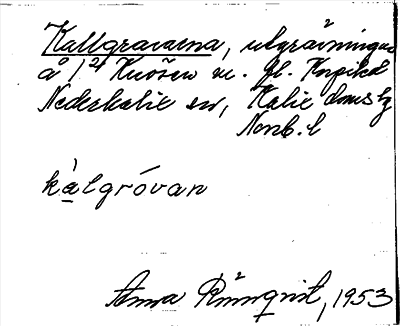 Kallgravarna, utgrävningar
å 1 2/4 m. fl.
Nederkalix sn, Kalix domsbg
Norrb. l
kàlgróvan
Anna Rönnqvist, 1953